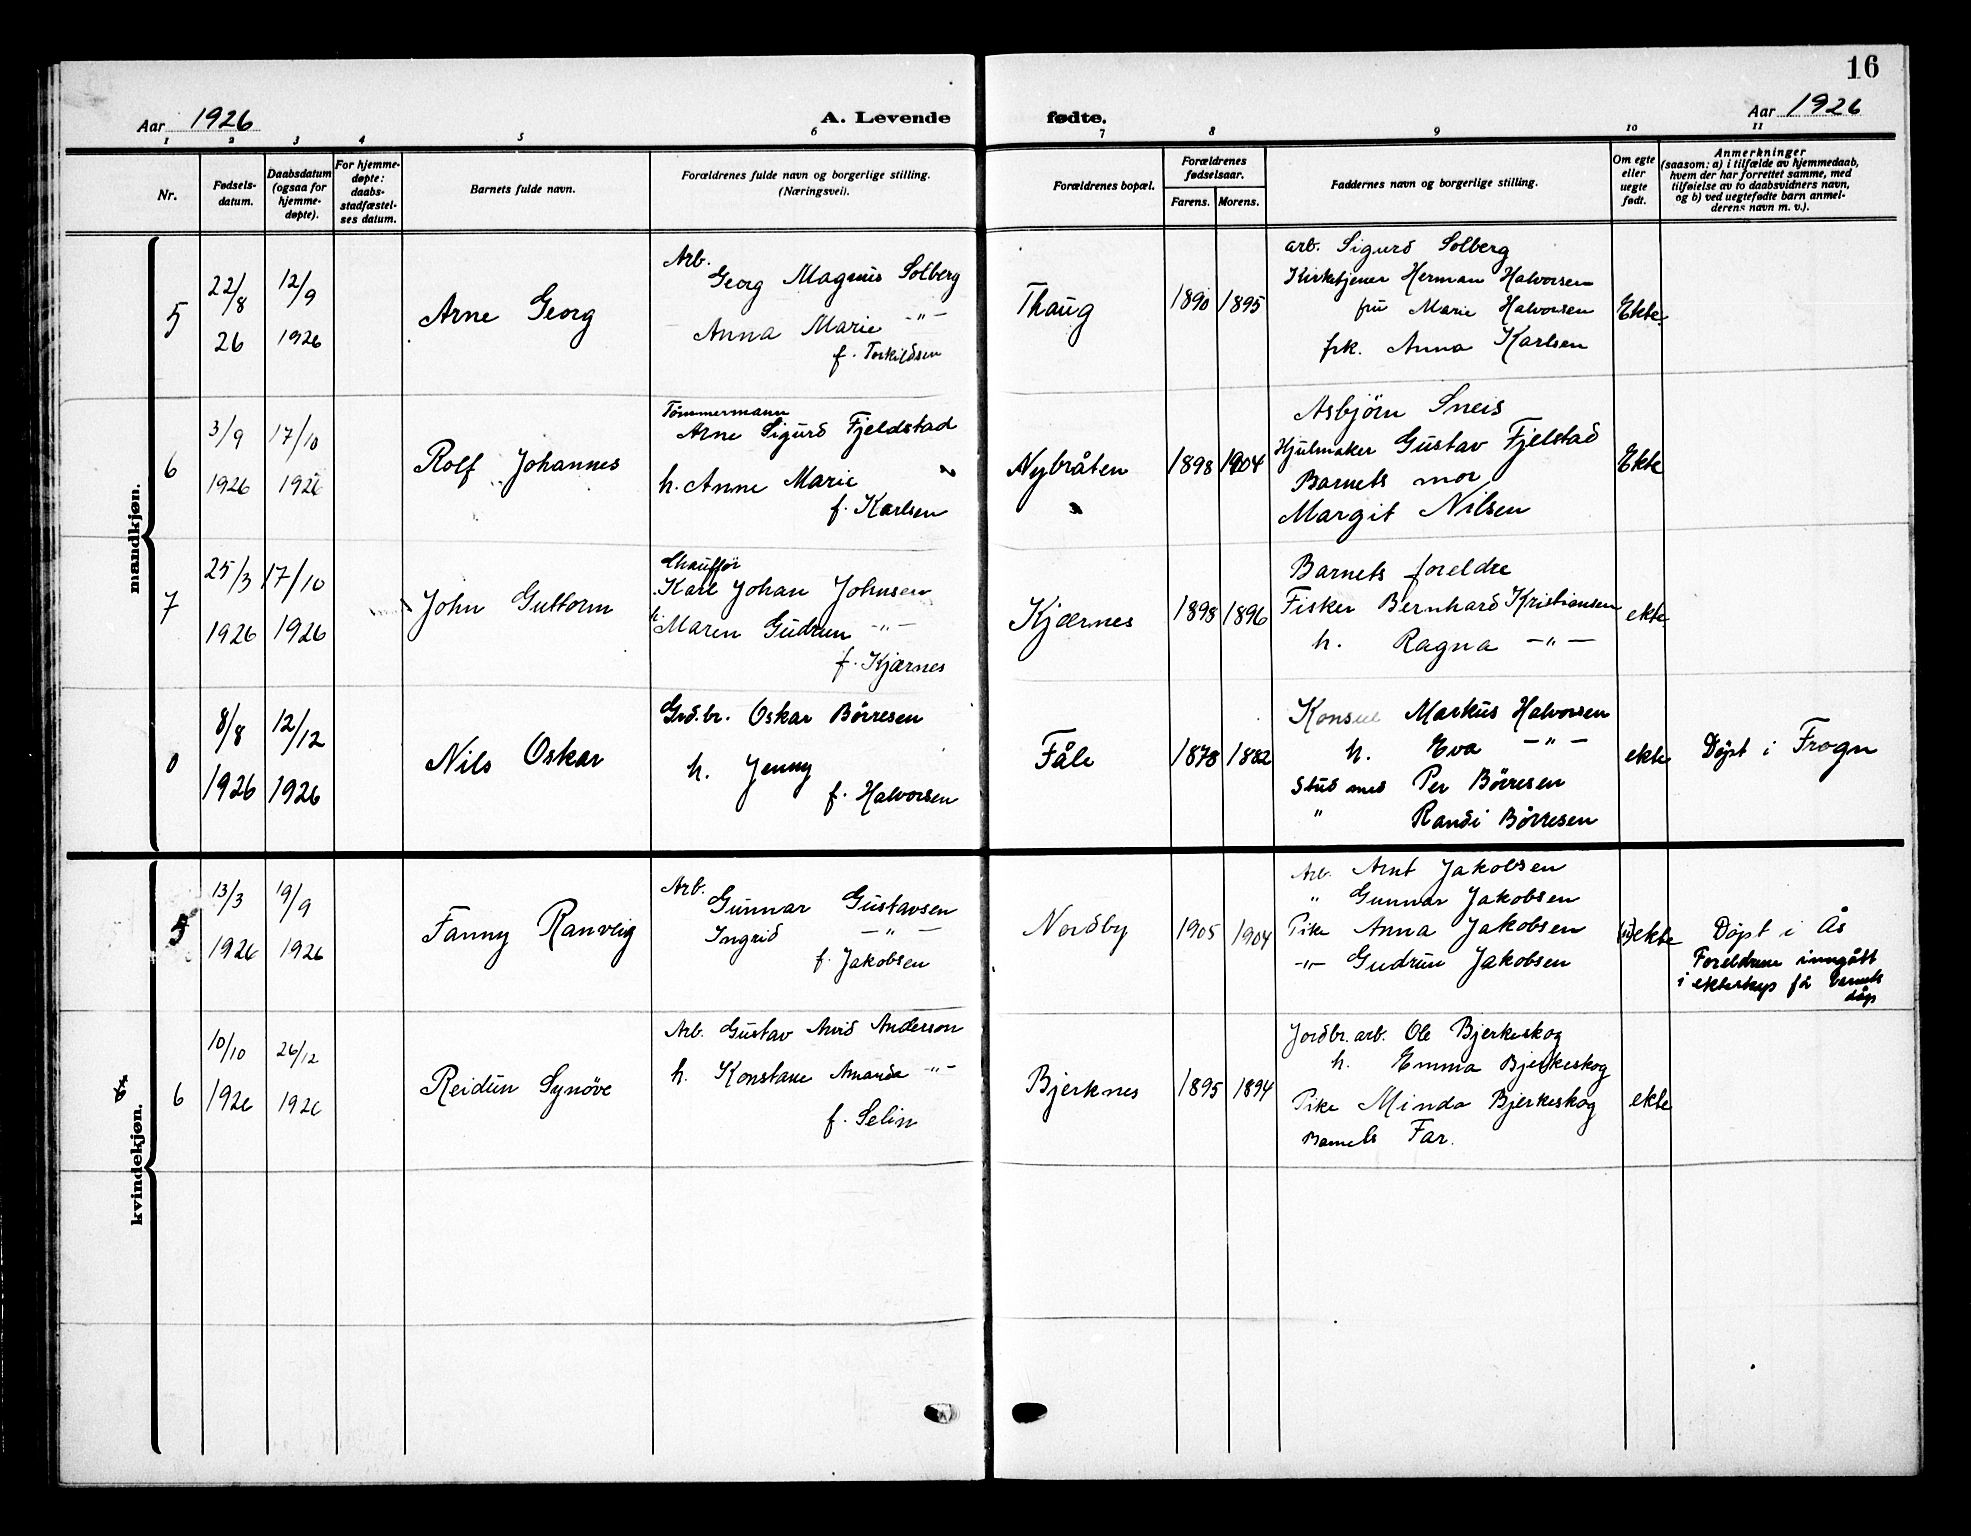 16
Aar 1926
A. Levende fødte.
Aar 1926
1 2 3 4 5 6 7 8 9 10 11
Nr.
Fødsels-
datum.
Daabsdatum
(ogsaa for
hjemme-
døpte).
For hjemme-
døpte:
daabs-
stadfæstel-
ses datum.
Barnets fulde navn.
Forældrenes fulde navn og borgerlige stilling.
(Næringsvei).
Forældrenes bopæl.
Forældrenes
fødselsaar.
Farens. Morens.
Faddernes navn og borgerlige stilling.
Om egte
eller
uegte
født.
Anmerkninger
(saasom: a) i tilfælde av hjemmedaab,
hvem der har forrettet samme, med
tilføielse av to daabsvidners navn,
og b) ved uegtefødte barn anmel-
derens navn m. v.).
mandkjøn.
5
22/8
26
12/9
1926
Arne Georg
Arb.
Georg Magnus Solberg
Anna Marie -"-
f. Torkildsen
Thaug
1890 1895
arb. Sigurd Solberg
Kirketjener Herman Halvorsen
fru Marie Halvorsen
frk. Anna Karlsen
Ekte.
6
3/9
1926
17/10
1926
Rolf Johannes
Tömmermann
Arne Sigurd Fjeldstad
h. Anne Marie
f. Karlsen
Nybråten
1898 1904
Asbjörn Sneis
Hjulmaker Gustav Fjelstad
Barnets mor
Margit Nilsen
Ekte
7
25/3
1926
17/10
1926
John Guttorm
Chauffør
Karl Johan Johnsen
h. Maren Gudrun -"-
f. Kjærnes
Kjærnes
1898 1896
Barnets foreldre
Fisker Bernhard Kristiansen
h. Ragna -"-
ekte
8/8
1926
12/12
1926
Nils Oskar
Grd.br. Oskar Börresen
h. Jenny
f. Halvorsen
Fåle
1878 1882
Konsul Markus Halvorsen
h. Eva -"-
Stud med Per Börresen
" Randi Börresen
ekte
Döpt i Frogn
kvindekjøn.
5
13/3
1926
19/9
1926
Fanny Ranveig
Arb.
Gunnar Gustavsen
Ingrid -"-
f. Jakobsen
Nordby
1905 1904
Arb. Arnt Jakobsen
" Gunnar Jakobsen
Pike Anna Jakobsen
-"- Gudrun Jakobsen
(u)ekte
Döpt i Ås
Foreldrene inngått
i ekteskap får barnets
dåp
6
10/10
1926
26/12
1926
Reidun Synöve
Arb. Gustav Arvid Anderson
h. Konstane Amanda -"-
f. Selin
Bjerknes
1895 1894
Jordbr. arb. Ole Bjerkeskog
h. Emma Bjerkeskog
Pike Minda Bjerkeskog
Barnets Far.
ekte